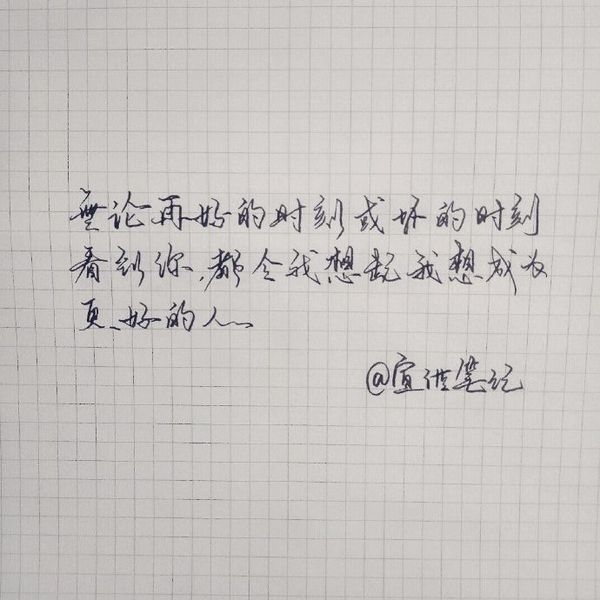 無论再好的时刻或坏的时刻
看到你,都会我想起我想成为
更好的人
@宣泄笔记